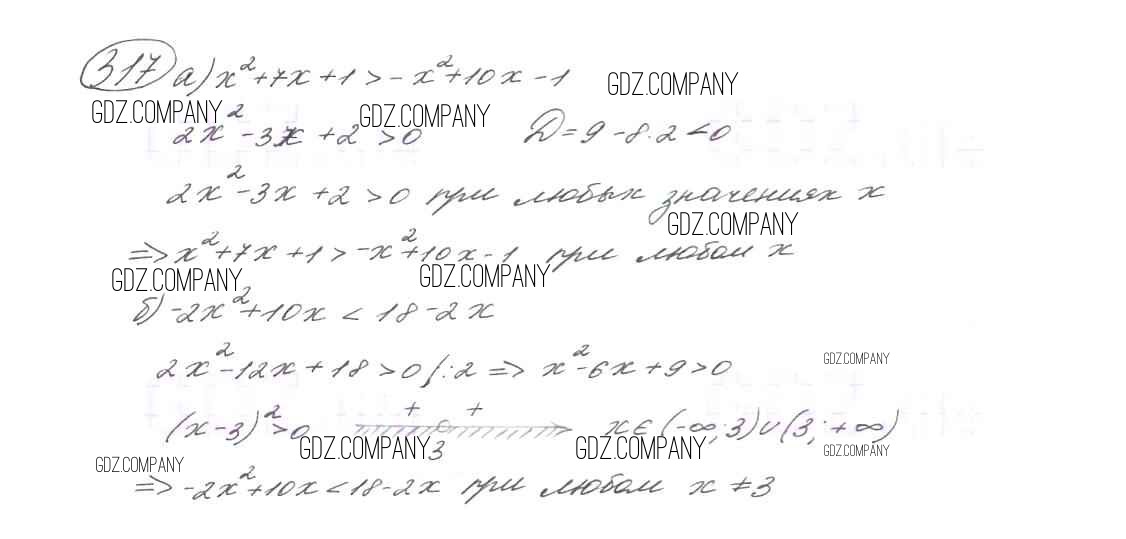 317 а) x²+7x+1>-x²+10x-1 GDZ.COMPANY
GDZ.COMPANY GDZ.COMPANY
2x²-3x+2>0 D=9-8·2<0
2x²-3x+2>0 при любых значениях x
GDZ.COMPANY
=> x²+7x+1>-x²+10x-1 при любом x
GDZ.COMPANY GDZ.COMPANY
б) -2x²+10x<18-2x
2x²-12x+18>0 /:2 => x²-6x+9>0 GDZ.COMPANY
(x-3)²>0 + + 3 x∈(-∞;3)∪(3;+∞)
GDZ.COMPANY GDZ.COMPANY GDZ.COMPANY
GDZ.COMPANY
=> -2x²+10x<18-2x при любом x≠3